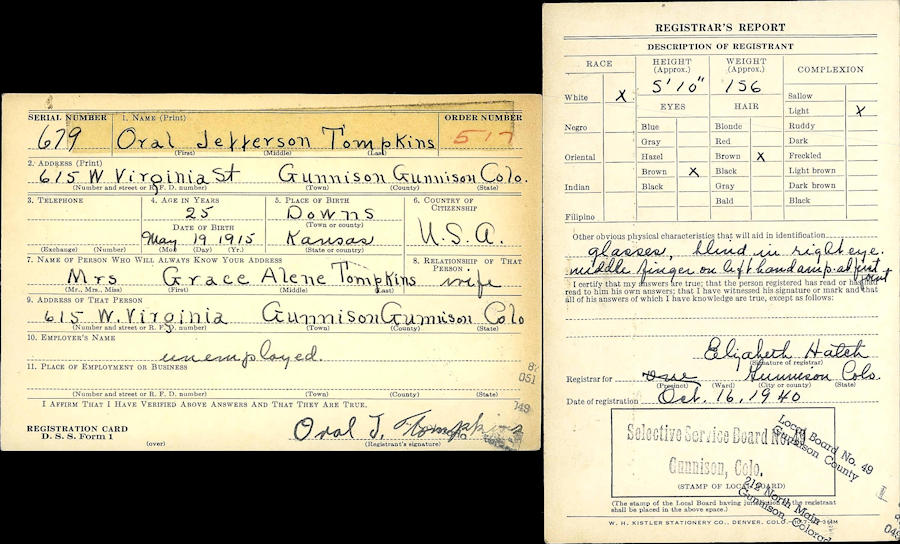 SERIAL NUMBER 1. NAME (Print) ORDER NUMBER
679 Oral Jefferson Tompkins 517
(First) (Middle) (Last)
2. ADDRESS (Print)
615 W Virginia St Gunnison Gunnison Colo.
(Number and street or R. F. D. number) (Town) (County) (State)
3. TELEPHONE 4. AGE IN YEARS 5. PLACE OF BIRTH 6. COUNTRY OF CITIZENSHIP
25 Downs
(Town or county)
DATE OF BIRTH
May 19 1915 Kansas U.S.A.
(Exchange) (Number) (Mo.) (Day) (Yr.) (State or country)
7. NAME OF PERSON WHO WILL ALWAYS KNOW YOUR ADDRESS 8. RELATIONSHIP OF THAT PERSON
Mrs Grace Alene Tompkins wife
(Mr., Mrs., Miss) (First) (Middle) (Last)
9. ADDRESS OF THAT PERSON
615 W. Virginia Gunnison Gunnison Colo
(Number and street or R. F. D. number) (Town) (County) (State)
10. EMPLOYER'S NAME
unemployed.
11. PLACE OF EMPLOYMENT OR BUSINESS
(Number and street or R. F. D. number) (Town) (County) (State)
I AFFIRM THAT I HAVE VERIFIED ABOVE ANSWERS AND THAT THEY ARE TRUE.
REGISTRATION CARD
D. S. S. Form 1
(over)
Oral J. Tompkins
(Registrant's signature)
REGISTRAR'S REPORT
DESCRIPTION OF REGISTRANT
RACE HEIGHT (Approx.) WEIGHT (Approx.) COMPLEXION
5' 10" 156
White X
EYES HAIR
Sallow
Light X
Negro Blue Blonde Ruddy
Gray Red Dark
Oriental Hazel Brown X Freckled
Brown X Black Light brown
Indian Black Gray Dark brown
Bald Black
Filipino
Other obvious physical characteristics that will aid in identification
glasses, blind in right eye.
middle finger on left hand amp. at first joint
I certify that my answers are true; that the person registered has read or has had
read to him his own answers; that I have witnessed his signature or mark and that
all of his answers of which I have knowledge are true, except as follows:
Elizabeth Hatch
(Signature of registrar)
Registrar for one Gunnison Colo.
(Precinct) (Ward) (City or county) (State)
Date of registration Oct. 16, 1940
Selective Service Board No. 49
Gunnison, Colo.
(STAMP OF LOCAL BOARD)
Local Board No. 49
Gunnison County
212 North Main
Gunnison Colorado
(The stamp of the Local Board having jurisdiction of the registrant
shall be placed in the above space.)
W. H. KISTLER STATIONERY CO., DENVER, COLO.